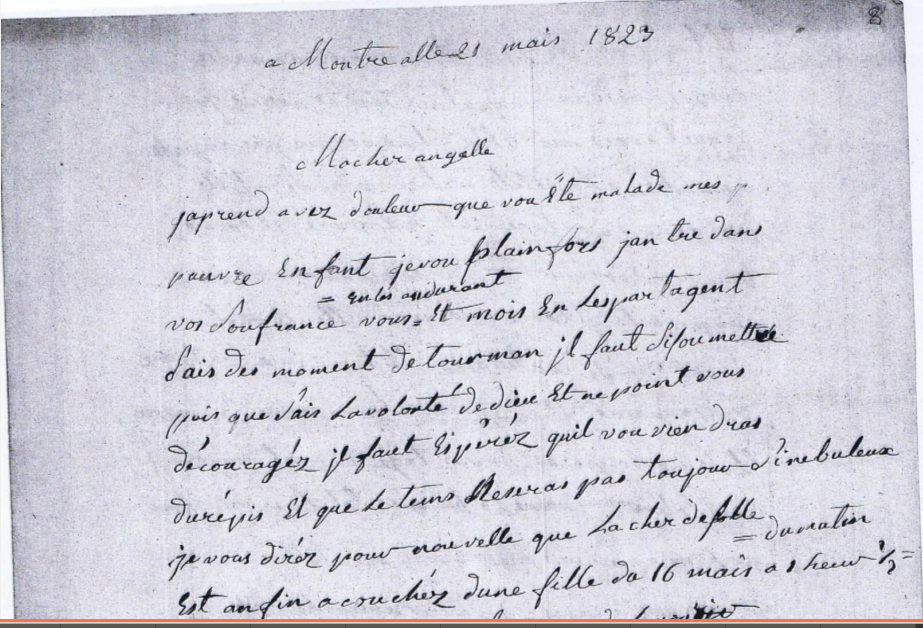 8
a Montrealle 21 mais 1823
Macher angelle
japrend avez douleur que vou Ete malade mes
pauvre Enfant jevou plain fors jantre dans
= En les andurant
vos Soufrance vous = Et mois En Lespartagent
Sais des moment detourman jl faut Sisoumettre
pois que Sais Lavolonté dedieu Et ne point vous
découragéz jl faut Espéréz quil vou vien dras
durépis Et que Le tems Neseras pas toujour Sinebuleux
je vous diréz pour nouvelle que La cher defolle
= dumatin
Est anfin acouchéz dune fille du 16 mais a 1 heur ½ =